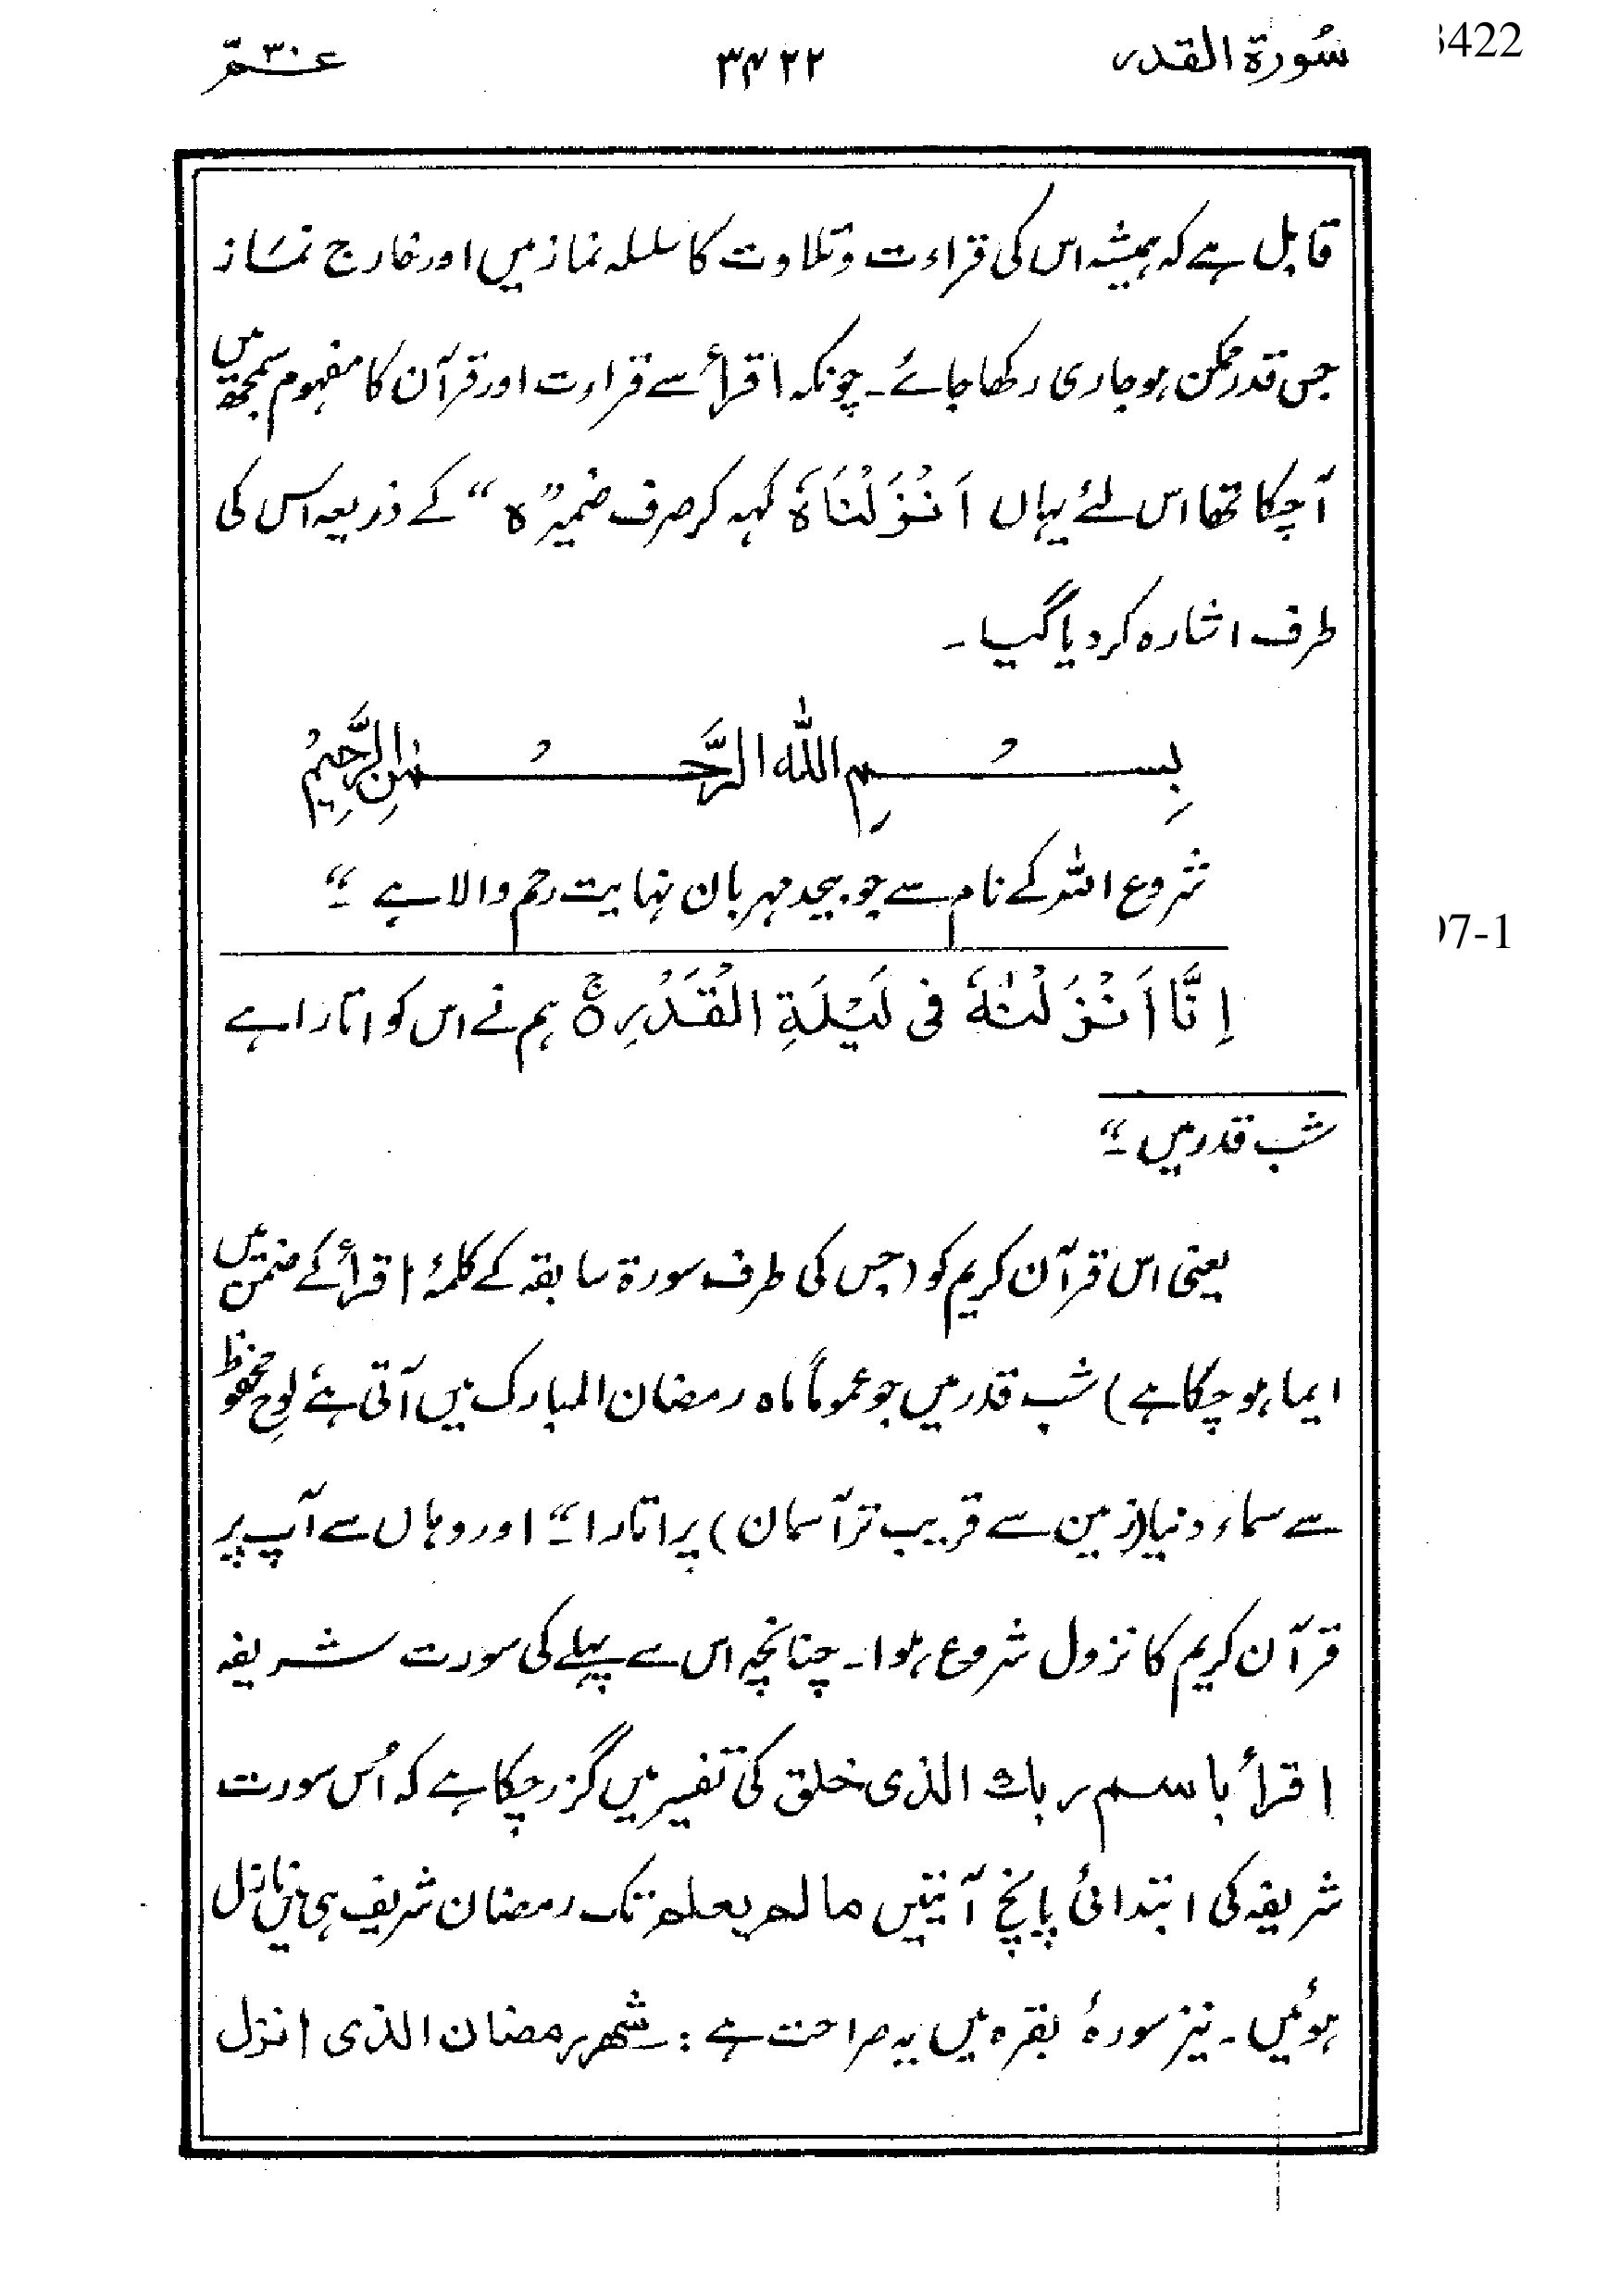 سُورة القدر ۳۴۲۲ عمّ ۳۰
422
قابل ہے کہ ہمیشہ اس کی قراءت و تلاوت کا سلسلہ نماز میں اور خارج نماز
جس قدر ممکن ہو جاری رکھا جائے۔ چونکہ اقرأ سے قراءت اور قرآن کا مفہوم سمجھ میں
آچکا تھا اس لئے یہاں اَنْزَلْنَاہُ کہہ کر صرف ضمیر "ہ" کے ذریعہ اس کی
طرف اشارہ کر دیا گیا۔
بِسْمِ اللہ الرَّحْمٰنِ الرَّحِیْمِ
شروع اللہ کے نام سے جو بیحد مہربان نہایت رحم والا ہے ۔"
اِنَّا اَنْزَلْنٰهُ فِی لَیْلَةِ الْقَدْرِ ہم نے اس کو اتارا ہے
7-1
شب قدر میں ۔"
یعنی اس قرآن کریم کو (جس کی طرف سورۃ سابقہ کے کلمۂ اقرأ کے ضمن میں
ایما ہو چکا ہے) شب قدر میں جو عموماً ماہ رمضان المبارک میں آتی ہے لوحِ محفوظ
سے سماء دنیا (زمین سے قریب تر آسمان) پر اتارا ۔" اور وہاں سے آپ پر
قرآن کریم کا نزول شروع ہوا۔ چنانچہ اس سے پہلے کی سورت شریفہ
اقرأ باسم ربك الذی خلق کی تفسیر میں گزر چکا ہے کہ اُس سورت
شریفہ کی ابتدائی پانچ آیتیں مالم یعلم تک رمضان شریف ہی میں نازل
ہوئیں۔ نیز سورۂ بقرہ میں یہ صراحت ہے : شهر رمضان الذی انزل